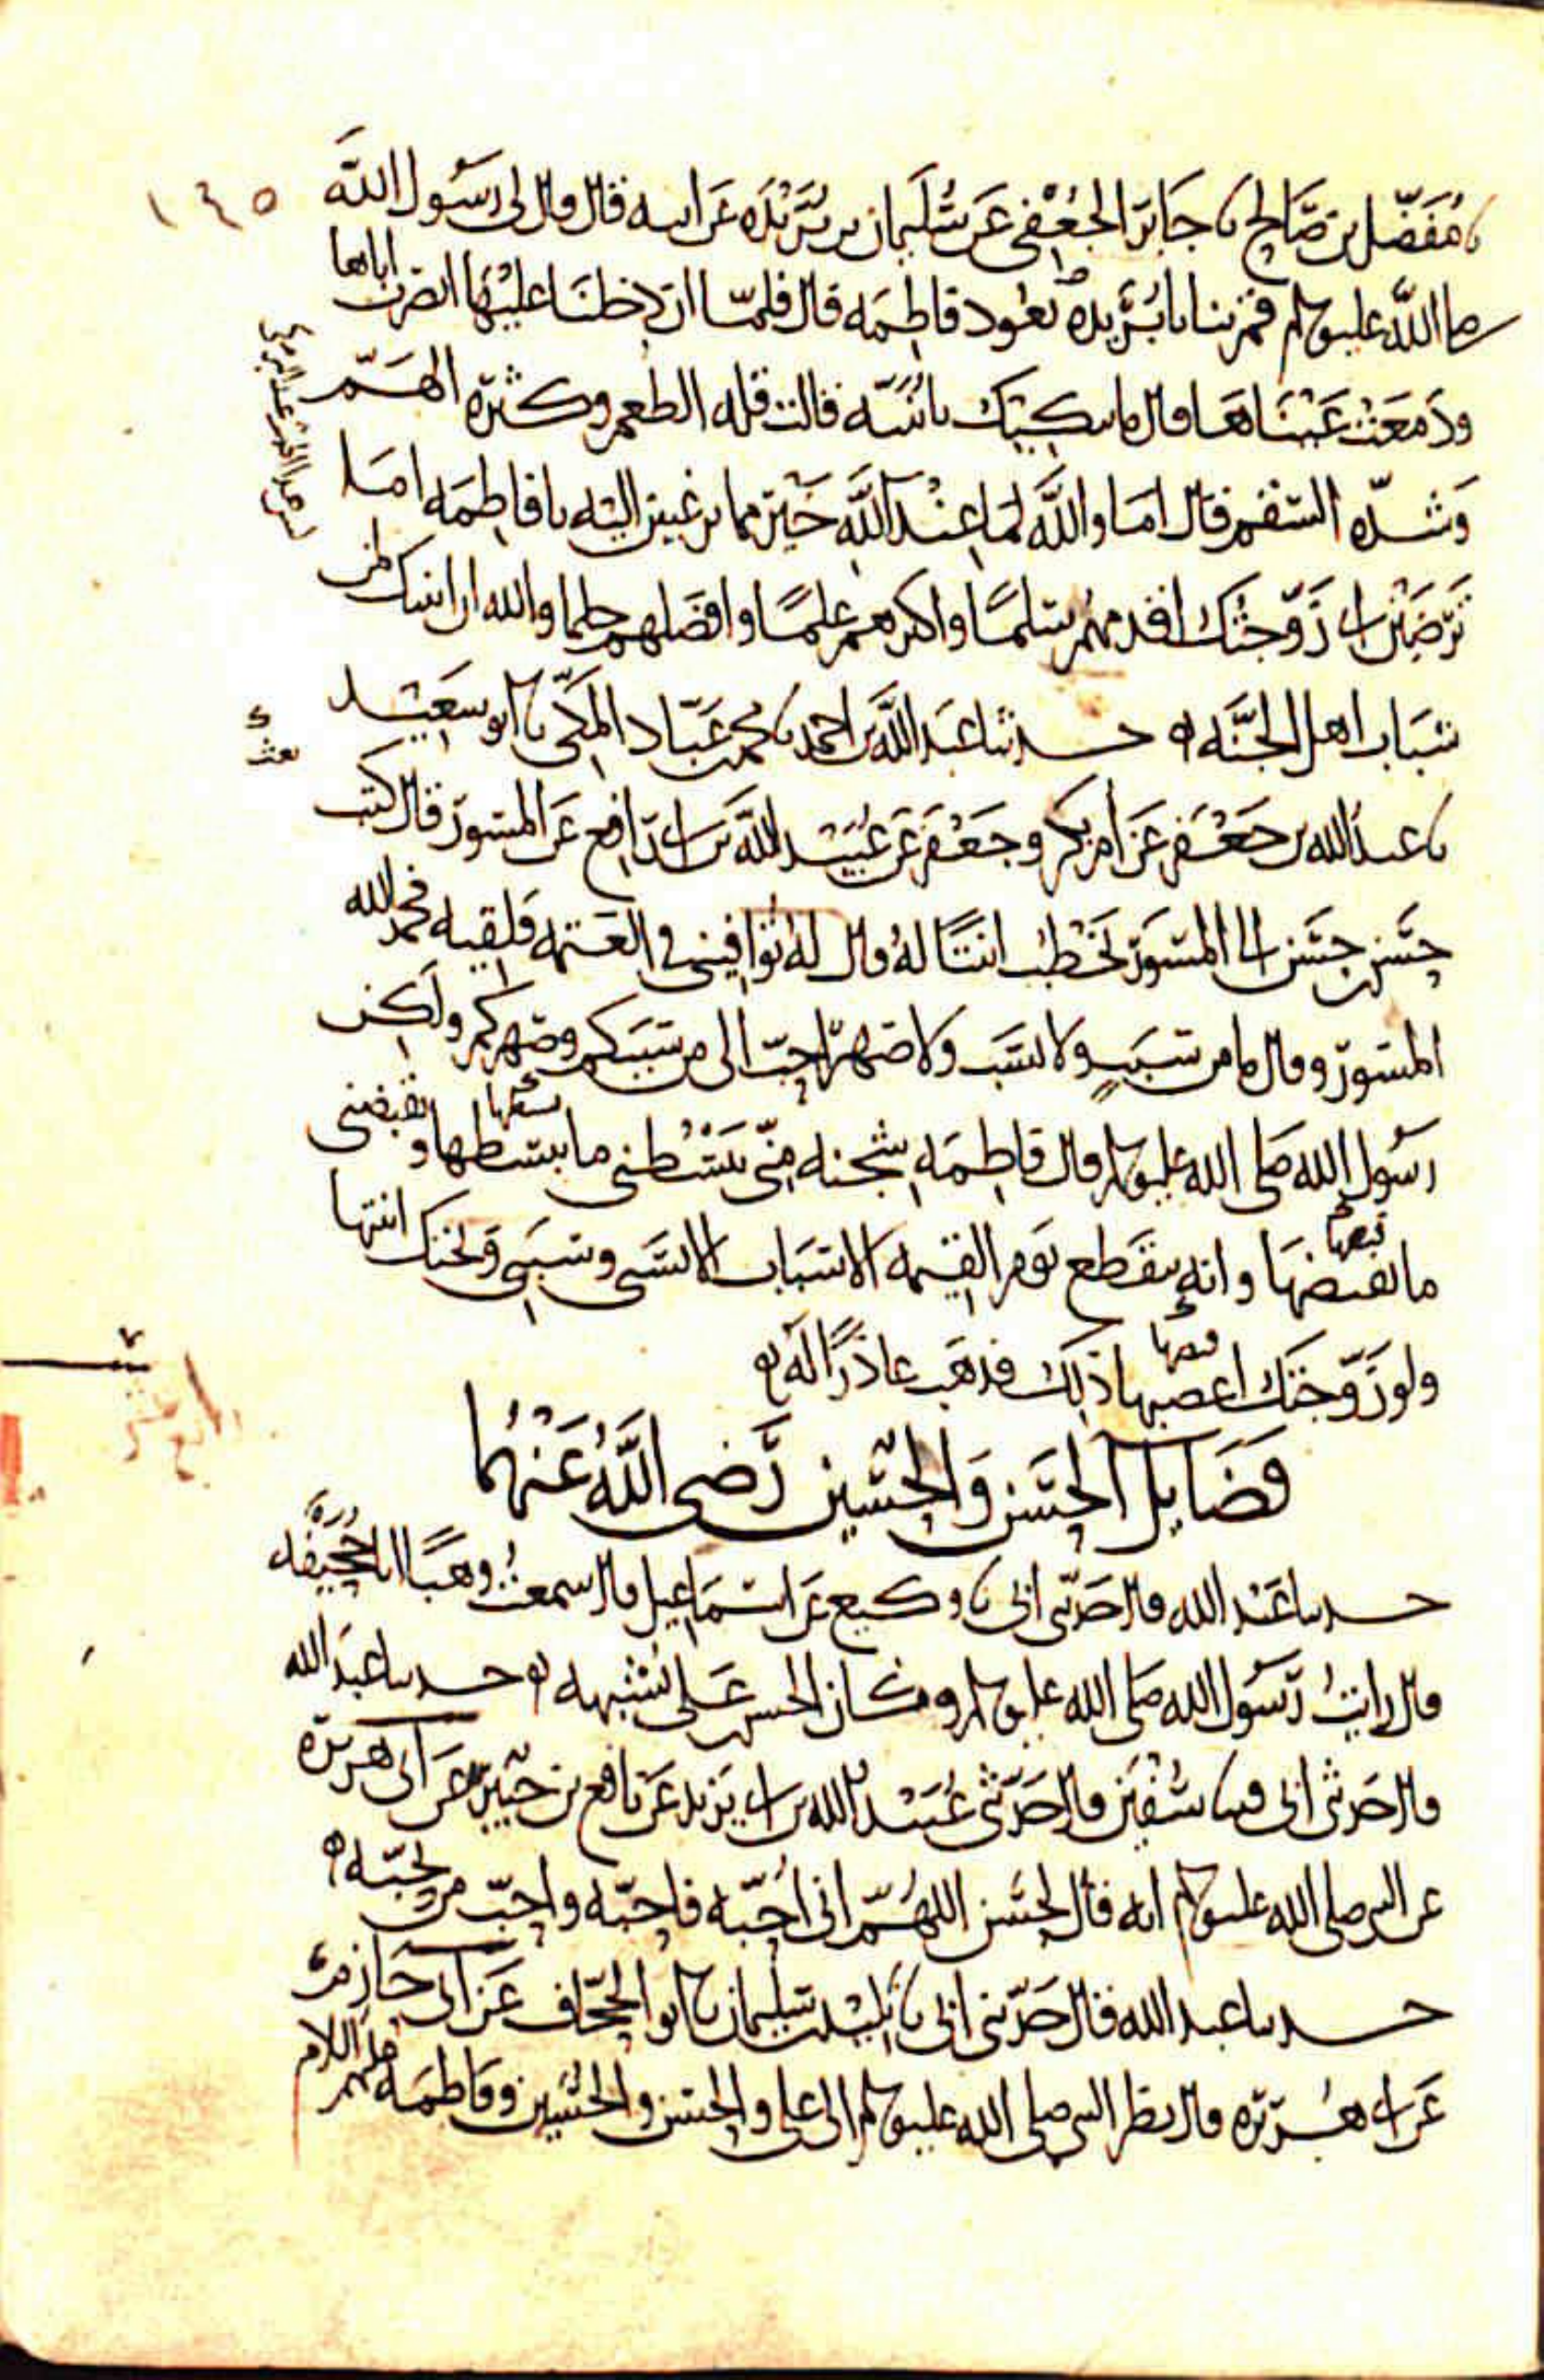 ١٤٥
نا مُفَضّل بن صَالح نا جَابر الجُعْفي عَن سُلَيمان بن بُرَيْدَه عَن ابيه قال قال لى رَسُول الله
صلى الله عليه وسلم قم بنا يا بُرَيده نعُود فاطِمَه قال فلمّا ان دخلنَا عليْهَا ابصرت اباها
ودَمعَتْ عَيْنَاهَا قال ما يبكِيك يا بُنَيّه قالت قله الطعم وكثرة الهَمّ
وَشدّه السقم قال امَا والله لمَا عِنْد الله خَيْر مما ترغبين اليه يا فاطِمَه امَا
تَرضَيْن انى زَوّجتُك اقدمهُم سِلمًا واكثرهم علمًا وافضَلهم حلما والله ان ابنيك لمن
شبَاب اهل الجنَّه حدثنا عَبد الله بن احمد نا محمد بن عَبّاد المكّى نا ابو سَعِيْد
نا عبد الله بن جَعْفَر عَن ام بكر وجَعْفَر عَن عُبَيْد الله بن ابى رَافِع عَن المسوَر قال كتب
حسَن بن حسَن الى المسوَر يَخْطُب ابنتًا لهُ قال له تُوَافِينى فى العَتمه فلقيه فحمد الله
المسوَر وقال ما من سَبَبٍ ولا نسَب ولا صِهر احبّ الى من نسَبكم وصِهركم ولكن
رسُول الله صَلى الله عليه وسلم قال فاطِمَه شِجنه مِنّى يَبْسُطنى ما يبسطها ويَقبضنى
ما يقبضهَا وانه ينقَطِع يَوم القِيمه الانسَاب الا نسَبى وسبَبى وَتحتك ابنتها
ولو زَوّجتك اغضبها ذلك فذهَب عاذرًا له
فَضَايل الحَسَن وَالحُسَين رَضى اللهُ عَنهُما
حدثنا عَبْد الله قال حَدثنى ابى نا وكيع عَن اسمَاعِيل قال سمعتُ وهبًا ابا جُحَيفَه
قال رايتُ رَسُول الله صَلى الله عليه وسلم وكان الحسن بن عَلى يُشبهه حدثنا عبدَ الله
قال حَدثنى ابى قثنا سُفْيَن قال حَدّثنى عُبَيْد الله بن ابى يَزيد عَن نافع بن جُبَير عَن ابى هريرَه
عن النبى صلى الله عليه وسلم انه قال لحسَن اللهُمّ انى اُحبّه فاحبّه واحبّ من يحبّه
حدثنا عبد الله قال حَدّثنى ابى نا تليْد بن سليمان نا ابو الجحّاف عَن ابى حَازم
عَن ابى هُريره قال نظر النبى صلى الله عليه وسلم الى على والحسَن والحُسَين وفاطِمَه عليهم السلام